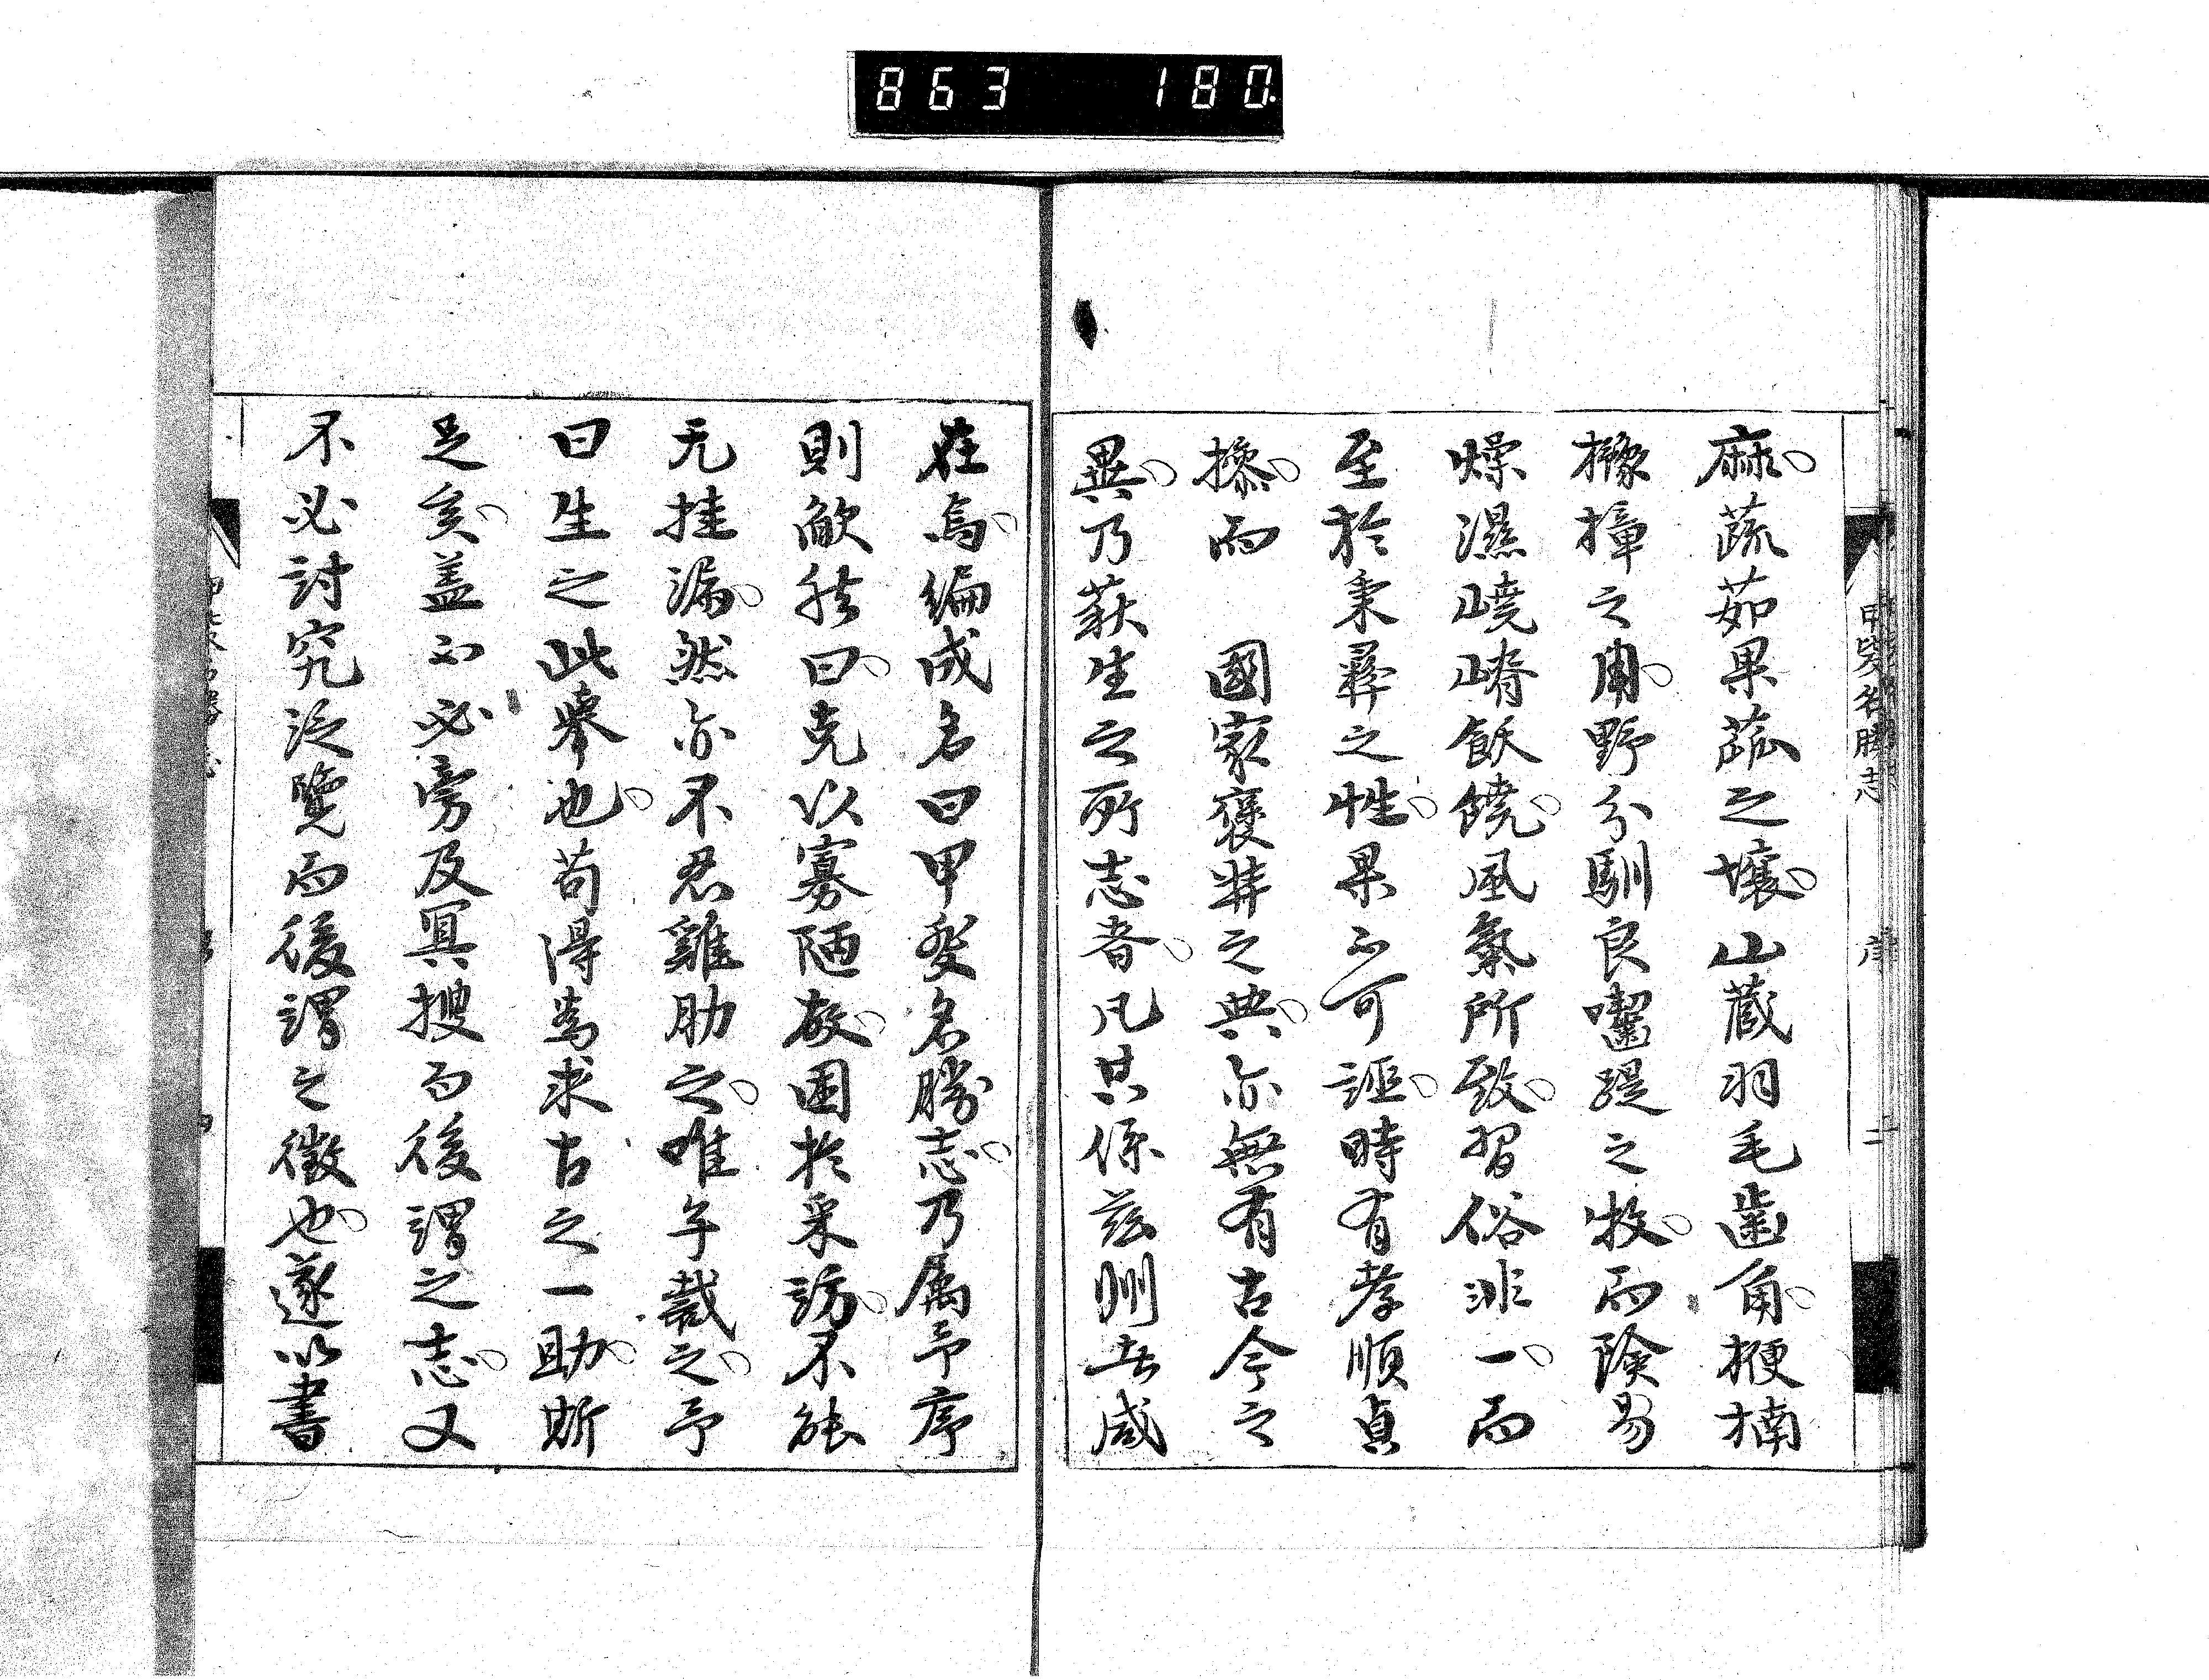 863 180
甲斐名勝志 序 二
麻蔬茹果蓏之壤山蔵羽毛歯角梗楠
橡樟之用野分馴良囓踶之牧而險易
燥濕嶢嵴飫饒風氣所致習俗非一而
至於秉彝之性果不可誣時有孝順貞
操而 國家褒奬之典亦無有古今之
異乃萩生之所志者凡其係茲州者咸
在焉編成名曰甲斐名勝志乃属予序
則歉然曰克以寡陋故困於采訪不能
无挂漏然亦不忍雞肋之唯予裁之予
曰生之此舉也苟得為求古之一助斯
足矣盖不必旁及冥搜而後謂之志又
不必討究泛覽而後謂之徴也遂以書